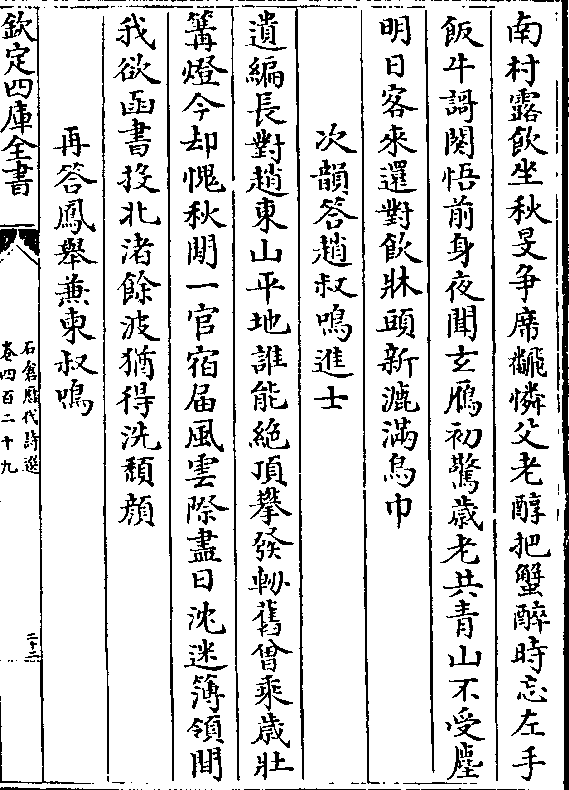 南村露飲坐秋旻争席翻憐父老醇把蟹醉時忘左手
飯牛謌闋悟前身夜聞玄鴈初驚歲老共青山不受塵
明日客來還對飲牀頭新漉滿烏巾
次韻答趙叔鳴進士
遺編長對趙東山平地誰能絶頂攀發軔舊曾乘歲壯
篝燈今却愧秋閒一官宿届風雲際盡日沈迷簿領間
我欲函書投北渚餘波猶得洗頽顔
再答鳳舉兼柬叔鳴
欽定四庫全書
石倉歷代詩選
卷四百二十九
二十二